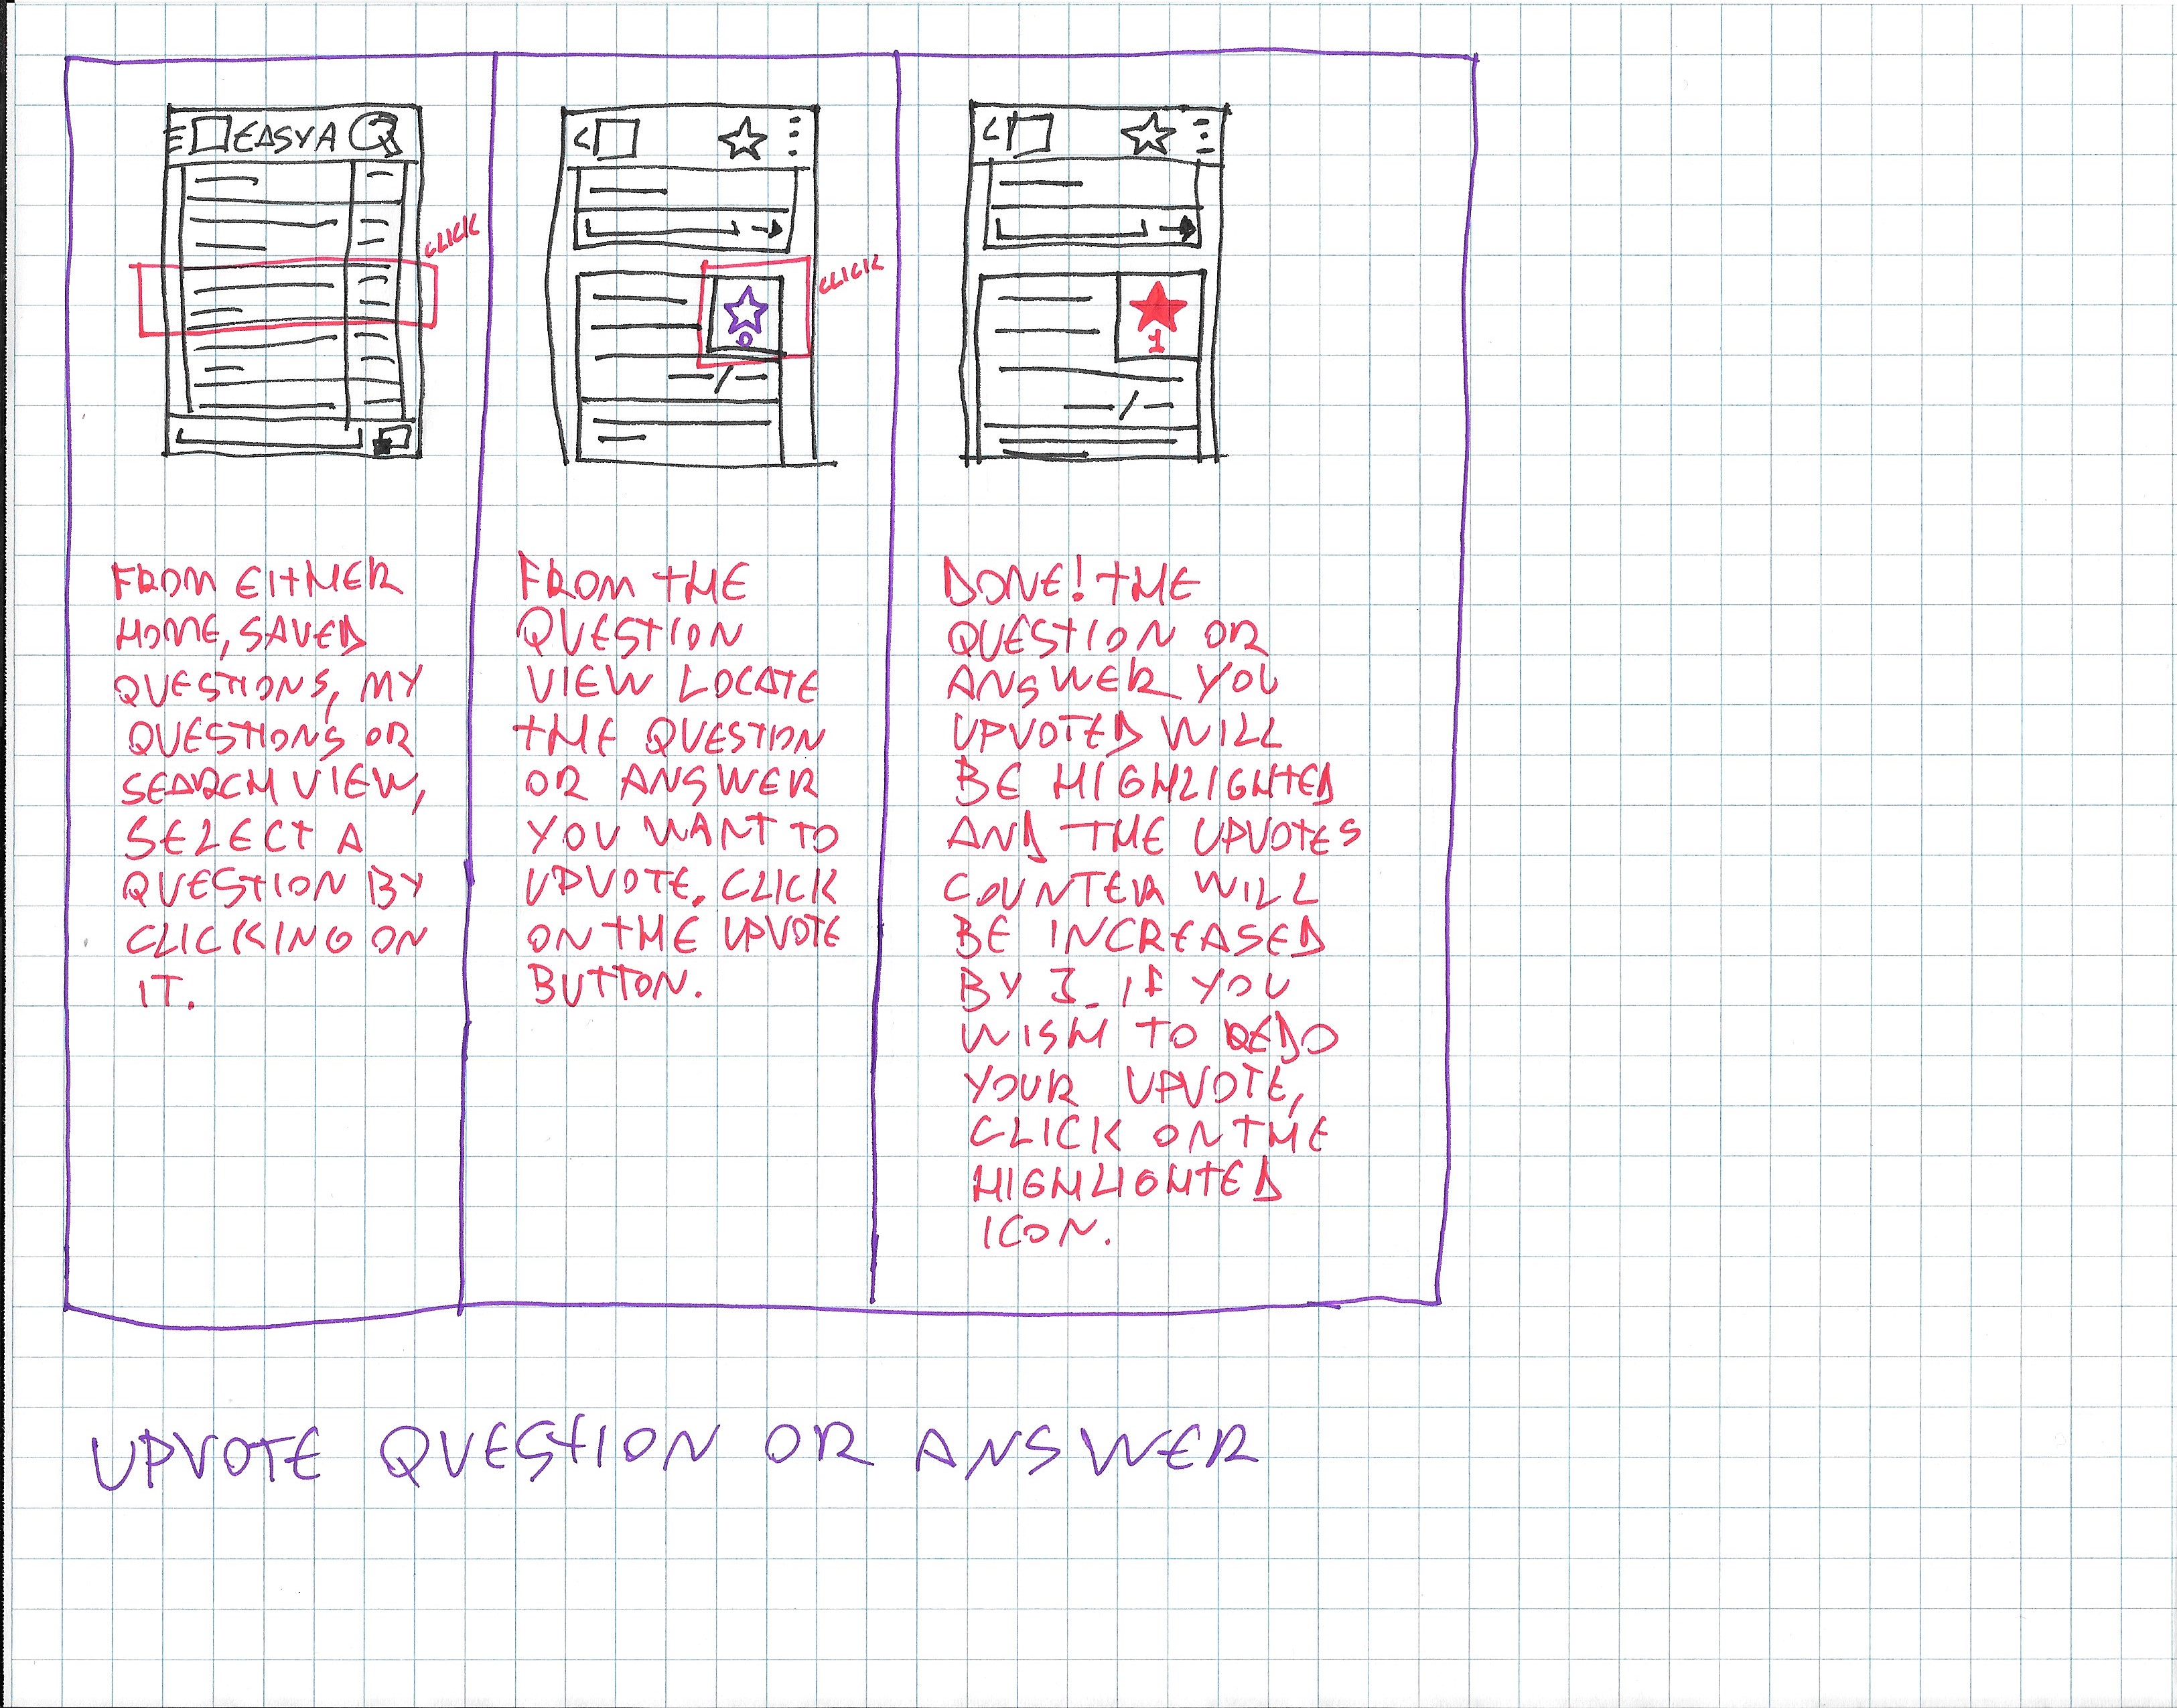 EASYA Q
CLICK
0
CLICK
1
FROM EITHER
HOME, SAVED
QUESTIONS, MY
QUESTIONS OR
SEARCH VIEW,
SELECT A
QUESTION BY
CLICKING ON
IT.
FROM THE
QUESTION
VIEW LOCATE
THE QUESTION
OR ANSWER
YOU WANT TO
UPVOTE. CLICK
ON THE UPVOTE
BUTTON.
DONE! THE
QUESTION OR
ANSWER YOU
UPVOTED WILL
BE HIGHLIGHTED
AND THE UPVOTES
COUNTER WILL
BE INCREASED
BY 1. IF YOU
WISH TO REDO
YOUR UPVOTE,
CLICK ON THE
HIGHLIGHTED
ICON.
UPVOTE QUESTION OR ANSWER